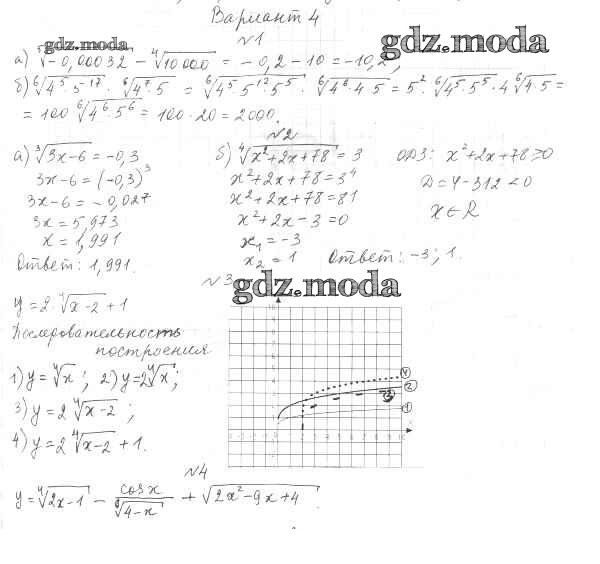 Вариант 4
№1
gdz.moda
gdz.moda
а) ⁵√-0,00032 - ⁴√10 000 = -0,2 - 10 = -10,2
б) ⁶√4⁵·5¹⁷ · ⁶√4⁷·5 = ⁶√4⁵·5¹²·5⁵ · ⁶√4⁶·4·5 = 5² · ⁶√4⁵·5⁵ · 4 ⁶√4·5 =
= 100 ⁶√4⁶·5⁶ = 100·20 = 2000.
№2
а) ³√3x-6 = -0,3
3x-6 = (-0,3)³
3x-6 = -0,027
3x = 5,973
x = 1,991
Ответ: 1,991.
б) ⁴√x²+2x+78 = 3
x²+2x+78 = 3⁴
x²+2x+78 = 81
x²+2x-3 = 0
x₁ = -3
x₂ = 1
ОДЗ: x²+2x+78≥0
D = 4-312 < 0
x ∈ R
Ответ: -3; 1.
№3
gdz.moda
y = 2·⁴√x-2 + 1
Последовательность
построения
1) y = ⁴√x; 2) y = 2⁴√x;
3) y = 2 ⁴√x-2;
4) y = 2 ⁴√x-2 + 1.
4
2
3
1
x
№4
y = ⁴√2x-1 - cosx / ⁸√4-x + √2x²-9x+4.